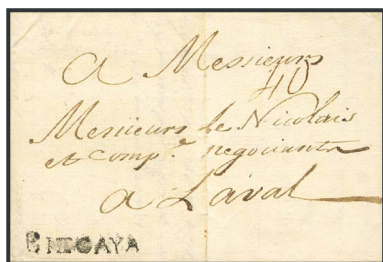 A Messieurs
40
Messieurs de Nicolais
et Comp.e negociants
a Laval